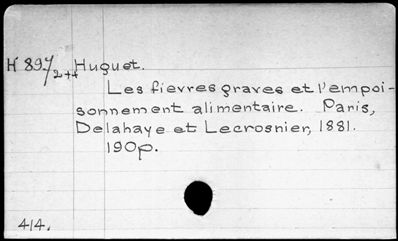 Huguet.
Les fievres graves et l'empoi-
sonnement alimentaire. Paris,
Delahaye et Lecrosnier, 1881.
190p.
414.